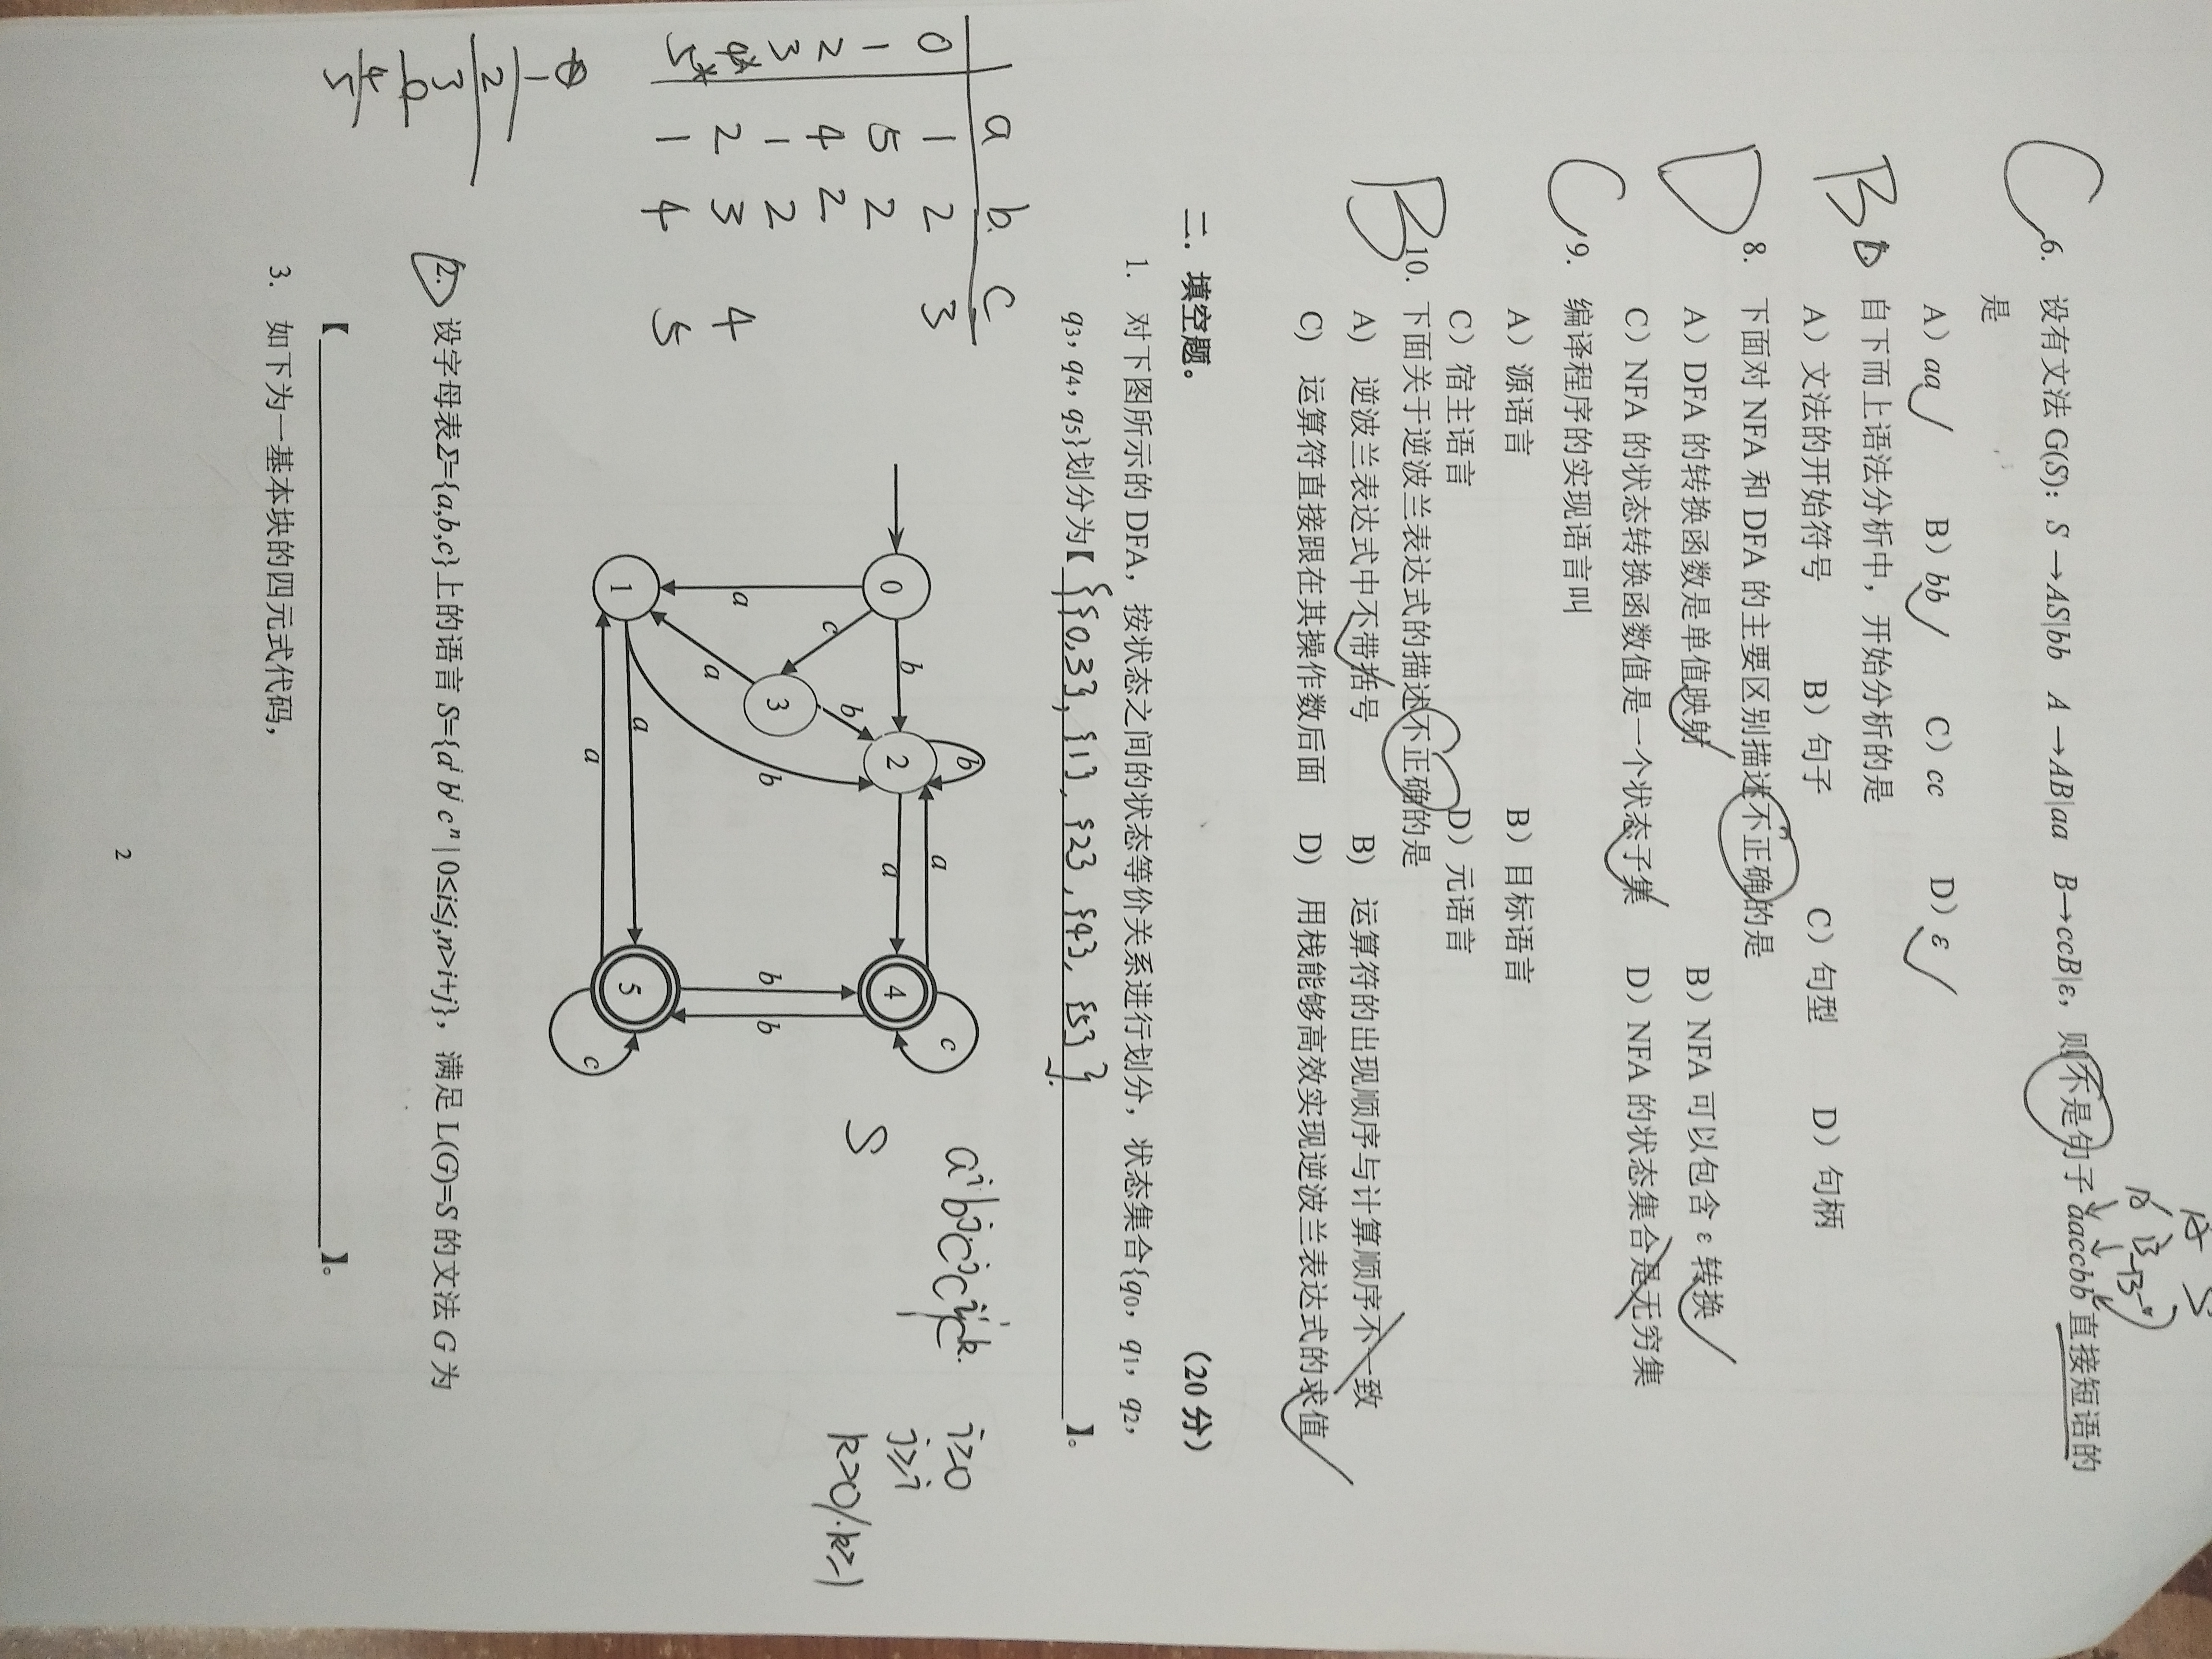 C 6. 设有文法 G(S)：S→AS|bb A→AB|aa B→ccB|ε，则不是句子 aaccbb 直接短语的
是
A）aa B）bb C）cc D）ε
B 自下而上语法分析中，开始分析的是
A）文法的开始符号 B）句子 C）句型 D）句柄
D 8. 下面对 NFA 和 DFA 的主要区别描述不正确的是
A）DFA 的转换函数是单值映射 B）NFA 可以包含 ε 转换
C）NFA 的状态转换函数值是一个状态子集 D）NFA 的状态集合是无穷集
C 9. 编译程序的实现语言叫
A）源语言 B）目标语言
C）宿主语言 D）元语言
B 10. 下面关于逆波兰表达式的描述不正确的是
A) 逆波兰表达式中不带括号 B) 运算符的出现顺序与计算顺序不一致
C) 运算符直接跟在其操作数后面 D) 用栈能够高效实现逆波兰表达式的求值
二. 填空题。 （20 分）
1. 对下图所示的 DFA，按状态之间的状态等价关系进行划分，状态集合{q0，q1，q2，
q3，q4，q5}划分为【 {{0,3},{1},{2},{4},{5}} 】。
a b c
0 1 2 3
1 5 2
2 4 2
3 1 2
4* 2 3 4
5* 1 4 5
0 1 2 3 4 5
a b c a b b a b a a a b b c c
S
aⁱbʲcʲcⁱcᵏ
i≥0
j≥i
k>0/k≥1
2. 设字母表Σ={a,b,c}上的语言 S={aⁱ bʲ cⁿ | 0≤i≤j,n>i+j}，满足 L(G)=S 的文法 G 为
【 】。
3. 如下为一基本块的四元式代码，
2